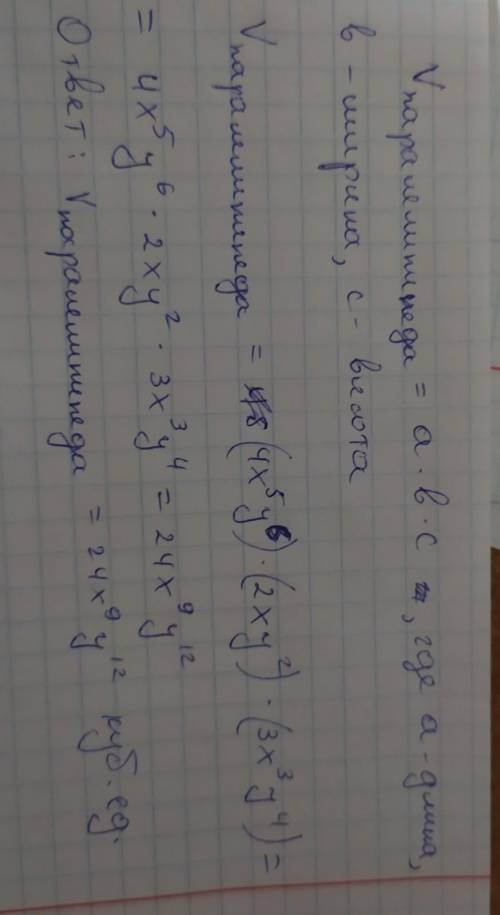 Vпаралелипипеда = а · в · с , где а - длина,
в - ширина, с - высота
Vпаралелипипеда = (4x⁵y⁶) · (2xy²) · (3x³y⁴) =
= 4x⁵y⁶ · 2xy² · 3x³y⁴ = 24x⁹y¹²
Ответ: Vпаралелипипеда = 24x⁹y¹² куб. ед.